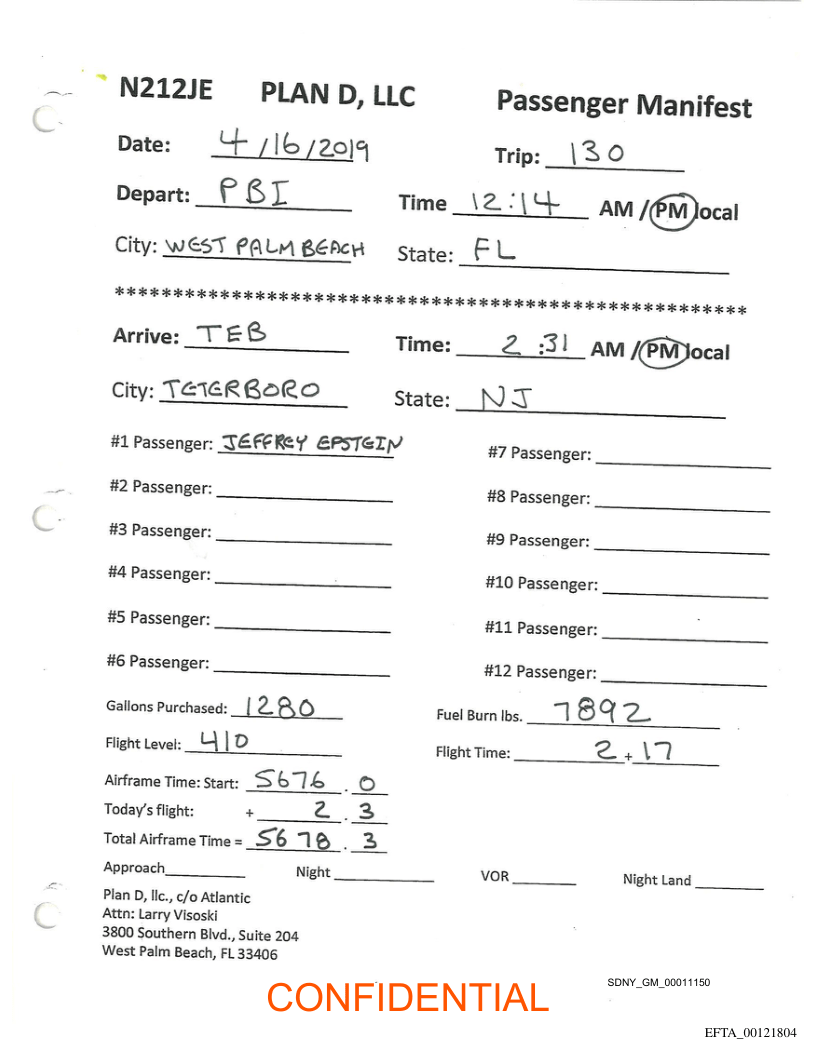 N212JE PLAN D, LLC Passenger Manifest
Date: 4/16/2019 Trip: 130
Depart: PBI Time 12:14 AM / PM local
City: WEST PALM BEACH State: FL
******************************************************
Arrive: TEB Time: 2:31 AM / PM local
City: TETERBORO State: NJ
#1 Passenger: JEFFREY EPSTEIN #7 Passenger:
#2 Passenger: #8 Passenger:
#3 Passenger: #9 Passenger:
#4 Passenger: #10 Passenger:
#5 Passenger: #11 Passenger:
#6 Passenger: #12 Passenger:
Gallons Purchased: 1280 Fuel Burn lbs. 7892
Flight Level: 410 Flight Time: 2 + 17
Airframe Time: Start: 5676 . 0
Today's flight: + 2 . 3
Total Airframe Time = 5678 . 3
Approach Night VOR Night Land
Plan D, llc., c/o Atlantic
Attn: Larry Visoski
3800 Southern Blvd., Suite 204
West Palm Beach, FL 33406
SDNY_GM_00011150
CONFIDENTIAL
EFTA_00121804